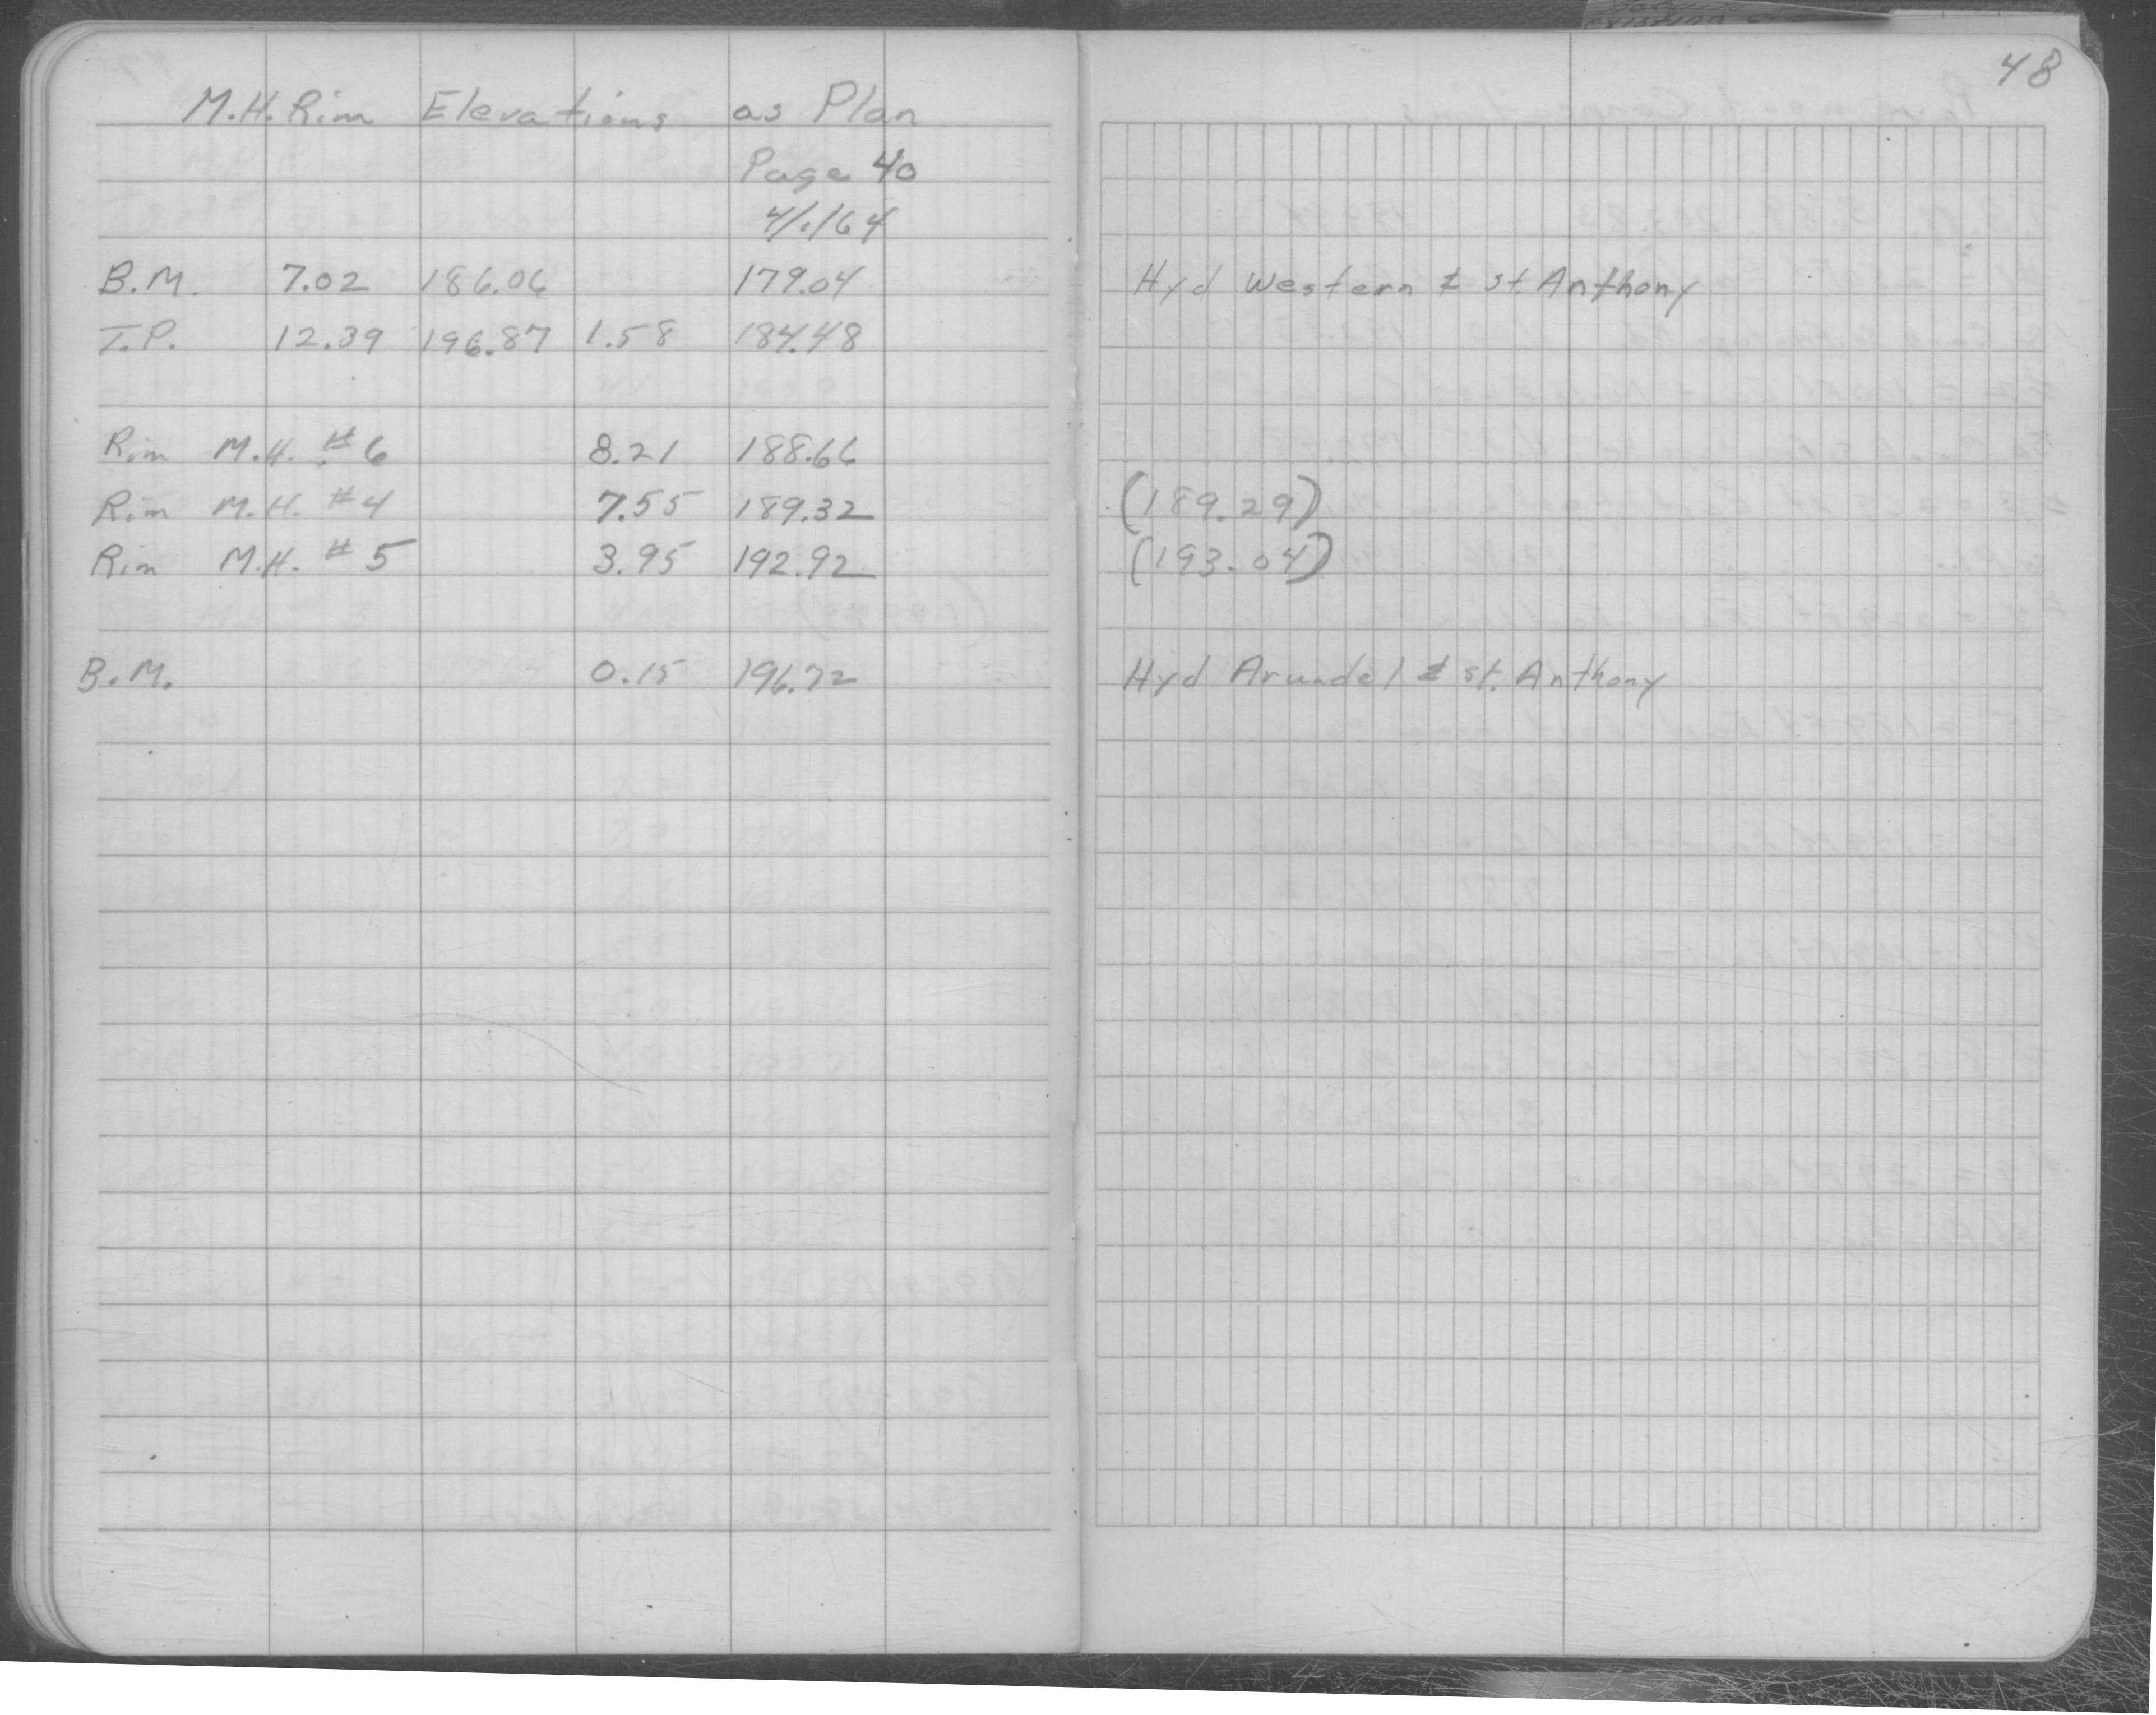 48
M.H. Rim Elevations as Plan
Page 40
4/1/64
B.M. 7.02 186.06 179.04 Hyd Western & St. Anthony
T.P. 12.39 196.87 1.58 184.48
Rim M.H. #6 8.21 188.66
Rim M.H. #4 7.55 189.32 (189.29)
Rim M.H. #5 3.95 192.92 (193.04)
B.M. 0.15 196.72 Hyd Arundel & St. Anthony